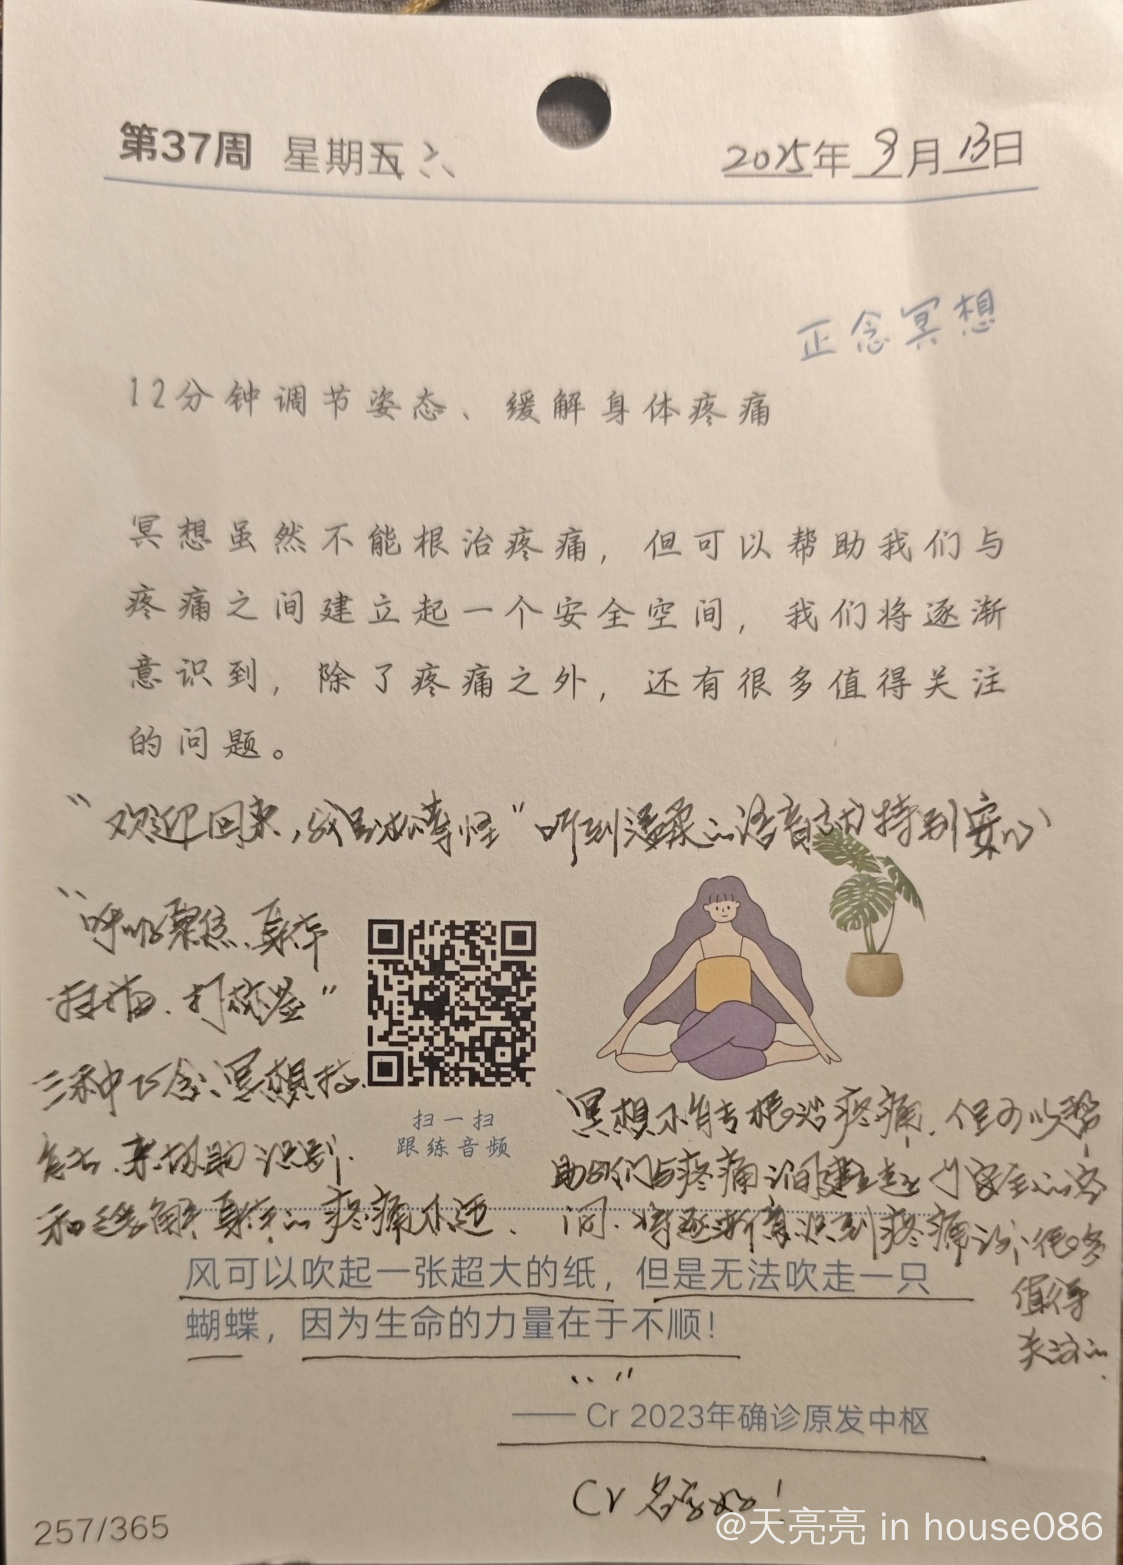 第37周 星期五 六 2025年9月13日
正念冥想
12分钟调节姿态、缓解身体疼痛
冥想虽然不能根治疼痛，但可以帮助我们与
疼痛之间建立起一个安全空间，我们将逐渐
意识到，除了疼痛之外，还有很多值得关注
的问题。
"欢迎回来，我是 "听到温柔的语音 特别安心
"呼吸聚焦、身体
扫描、打标签"
三种正念冥想技
巧去 来协助识别
和缓解身体的疼痛不适、
扫一扫
跟练音频
冥想不能根治疼痛，但可以帮
助我们与疼痛之间建立起一个安全的空
间，将逐渐意识到疼痛 很多
值得
关注的
风可以吹起一张超大的纸，但是无法吹走一只
蝴蝶，因为生命的力量在于不顺！
—— Cr 2023年确诊原发中枢
Cr 名字好！
257/365
@天亮亮 in house086